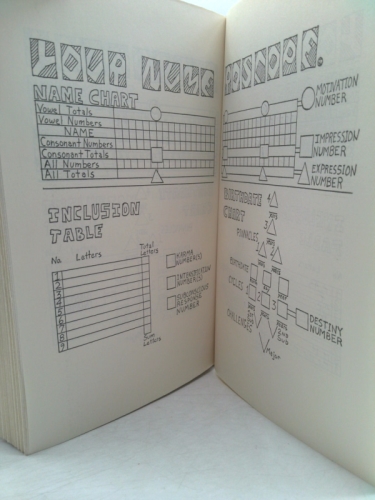 YOUR NUMEROSCOPE.
NAME CHART
Vowel Totals
Vowel Numbers
NAME
Consonant Numbers
Consonant Totals
All Numbers
All Totals
MOTIVATION
NUMBER
IMPRESSION
NUMBER
EXPRESSION
NUMBER
INCLUSION
TABLE
No. Letters
Total
Letters
1
2
3
4
5
6
7
8
9
Sum
Letters
KARMA
NUMBER(S)
INTENSIFICATION
NUMBER(S)
SUBCONSCIOUS
RESPONSE
NUMBER
BIRTHDATE
CHART
PINNACLES
BIRTHDATE
CYCLES
1
2
3
DESTINY
NUMBER
CHALLENGES
Major